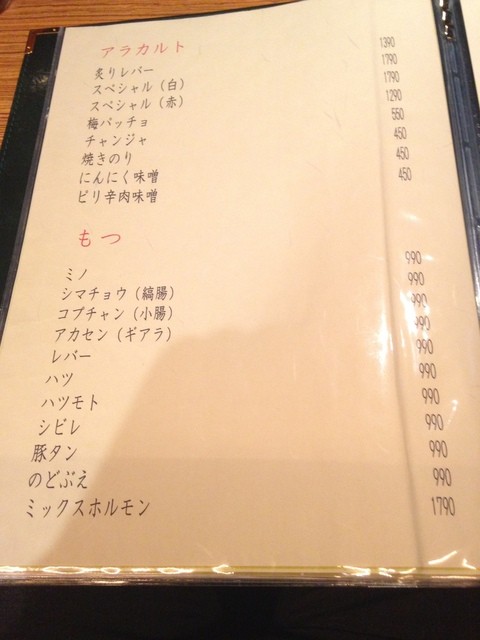 アラカルト
炙りレバー 1390
スペシャル（白） 1790
スペシャル（赤） 1790
梅パッチョ 1290
チャンジャ 550
焼きのり 450
にんにく味噌 450
ピリ辛肉味噌 450
もつ
ミノ 990
シマチョウ（縞腸） 990
コプチャン（小腸） 990
アカセン（ギアラ） 990
レバー 990
ハツ 990
ハツモト 990
シビレ 990
豚タン 990
のどぶえ 990
ミックスホルモン 1790